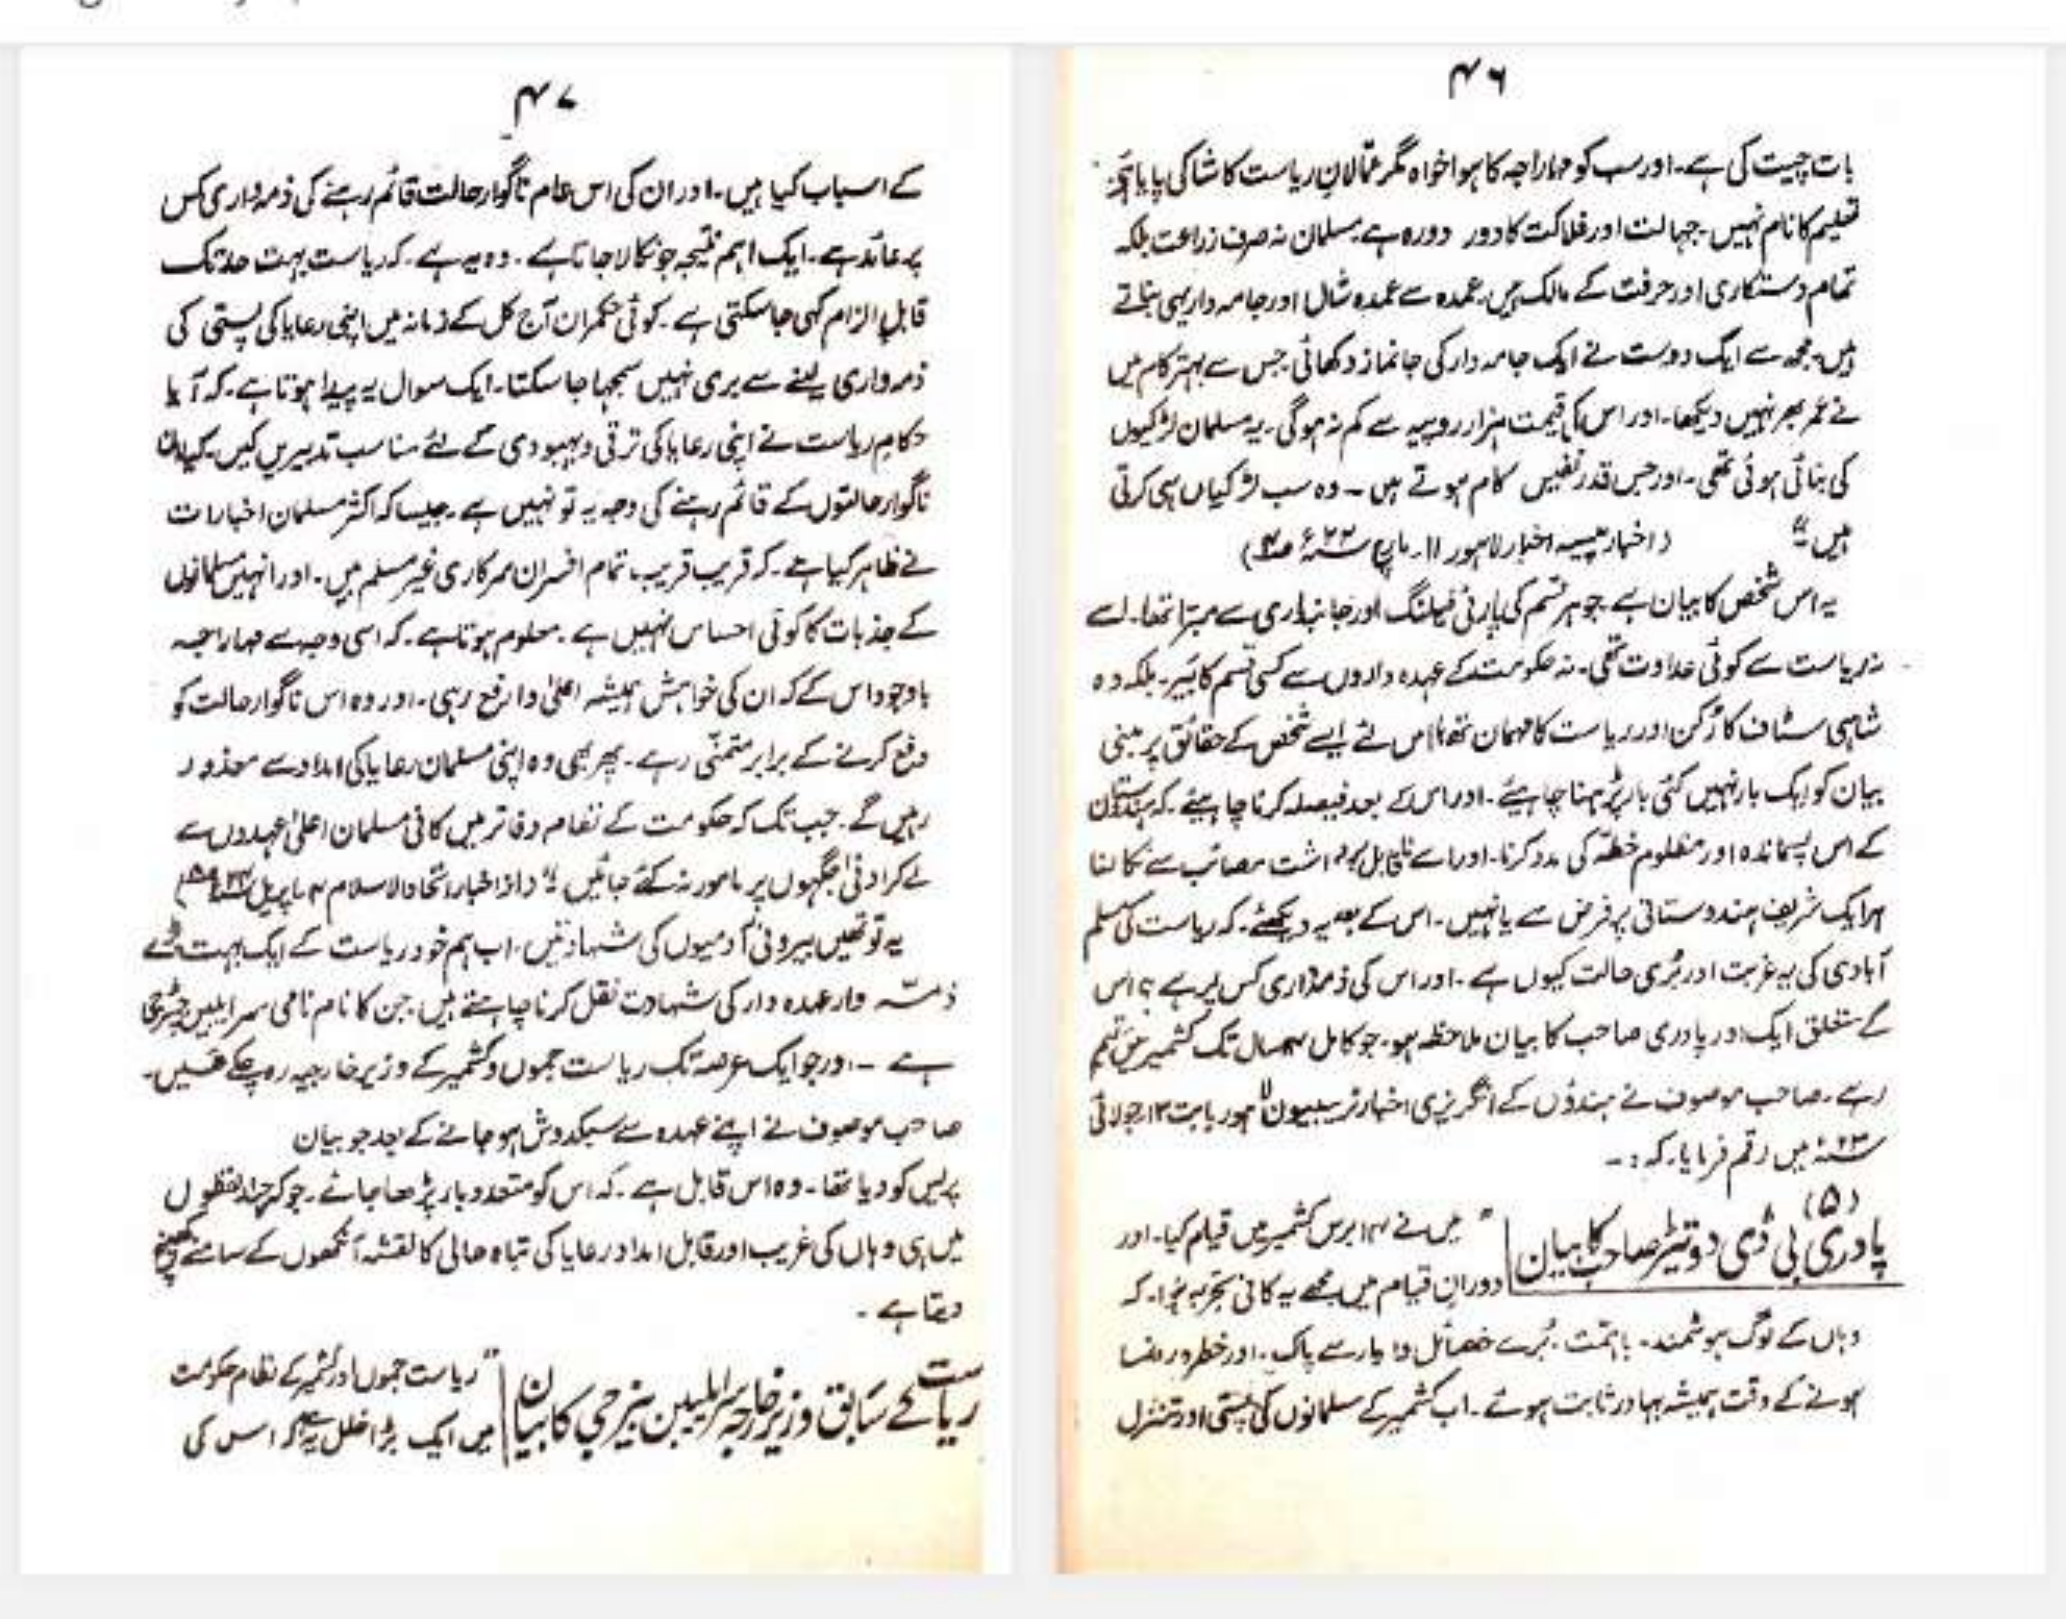 ۴۶
بات چیت کی ہے۔ اور سب کو مہاراجہ کا ہوا خواہ مگر عمّالانِ ریاست کا شاکی پایا ہے۔
تعلیم کا نام نہیں۔ جہالت اور فلاکت کا دور دورہ ہے۔ مسلمان نہ صرف زراعت بلکہ
تمام دستکاری اور حرفت کے مالک ہیں۔ عمدہ سے عمدہ شال اور جامہ دار یہی بناتے
ہیں۔ مجھ سے ایک دوست نے ایک جامہ دار کی جانماز دکھائی۔ جس سے بہتر کام میں
نے عمر بھر نہیں دیکھا۔ اور اس کی قیمت ہزار روپیہ سے کم نہ ہوگی۔ یہ مسلمان لڑکیوں
کی بنائی ہوئی تھی۔ اور جس قدر نفیس کام ہوتے ہیں ۔ وہ سب لڑکیاں ہی کرتی
ہیں" (اخبار پیسہ اخبار لاہور ۱۱۔ مارچ
یہ اس شخص کا بیان ہے۔ جو ہر قسم کی پارٹی فیلنگ اور جانبداری سے مبرّا تھا۔ اسے
نہ ریاست سے کوئی عداوت تھی۔ نہ حکومت کے عہدہ داروں سے کسی قسم کا بَیر۔ بلکہ وہ
شاہی سٹاف کا رُکن اور ریاست کا مہمان تھا۔ اس لئے ایسے شخص کے حقائق پر مبنی
بیان کو ایک بار نہیں کئی بار پڑہنا چاہیئے۔ اور اس کے بعد فیصلہ کرنا چاہیئے۔ کہ ہندوستان
کے اس پسماندہ اور مظلوم خطّہ کی مدد کرنا۔ اور اسے ناقابلِ برداشت مصائب سے نکالنا
ہر ایک شریف ہندوستانی پر فرض ہے یا نہیں۔ اس کے بعد یہ دیکھئے۔ کہ ریاست کی مسلم
آبادی کی یہ غربت اور بُری حالت کیوں ہے ۔ اور اس کی ذمہ داری کس پر ہے ؟ اس
کے متعلق ایک اور پادری صاحب کا بیان ملاحظہ ہو۔ جو کامل سال تک کشمیر میں مقیم
رہے۔ صاحب موصوف نے ہندوؤں کے انگریزی اخبار ٹریبیون لاہور بابت ۱۲ جولائی
میں رقم فرمایا۔ کہ :۔
(۵)
پادری بی ڈی صاحب کا بیان
" میں نے ۱۴ برس کشمیر میں قیام کیا۔ اور
دورانِ قیام میں مجھے یہ کافی تجربہ ہوا۔ کہ
وہاں کے لوگ ہوشمند۔ باہمّت۔ بُرے خصائل سے پاک۔ اور خطرہ رونما
ہونے کے وقت ہمیشہ بہادر ثابت ہوئے۔ اب کشمیر کے مسلمانوں کی پستی اور تنزل
۴۷
کے اسباب کیا ہیں۔ اور ان کی اس عام ناگوار حالت قائم رہنے کی ذمہ داری کس
پر عائد ہے۔ ایک اہم نتیجہ جو نکالا جاتا ہے ۔ وہ یہ ہے۔ کہ ریاست بہت حد تک
قابلِ الزام کہی جا سکتی ہے۔ کوئی حکمران آج کل کے زمانہ میں اپنی رعایا کی پستی کی
ذمہ داری لینے سے بری نہیں سمجہا جا سکتا۔ ایک سوال یہ پیدا ہوتا ہے۔ کہ آیا
حکامِ ریاست نے اپنی رعایا کی ترقی و بہبودی کے لئے مناسب تدبیریں کیں۔ کیا ان
ناگوار حالتوں کے قائم رہنے کی وجہ یہ تو نہیں ہے۔ جیسا کہ اکثر مسلمان اخبارات
نے ظاہر کیا ہے۔ کہ قریب قریب تمام افسران سرکاری غیر مسلم ہیں۔ اور انہیں مسلمانوں
کے جذبات کا کوئی احساس نہیں ہے ۔ معلوم ہوتا ہے۔ کہ اسی وجہ سے مہاراجہ
باوجود اس کے کہ ان کی خواہش ہمیشہ اعلیٰ و ارفع رہی۔ اور وہ اس ناگوار حالت کو
دفع کرنے کے برابر متمنّی رہے۔ پھر بھی وہ اپنی مسلمان رعایا کی امداد سے معذور
رہیں گے۔ جب تک کہ حکومت کے نظام دفاتر میں کافی مسلمان اعلیٰ عہدوں سے
لے کر ادنیٰ جگہوں پر مامور نہ کئے جائیں" (از اخبار اتحاد الاسلام اپریل
یہ تو تھیں بیرونی آدمیوں کی شہادتیں۔ اب ہم خود ریاست کے ایک بہت بڑے
ذمہ وار عہدہ دار کی شہادت نقل کرنا چاہتے ہیں۔ جن کا نام نامی سر ایلبین بینرجی
ہے ۔ اور جو ایک عرصہ تک ریاست جموں و کشمیر کے وزیر خارجیہ رہ چکے ہیں۔
صاحب موصوف نے اپنے عہدہ سے سبکدوش ہو جانے کے بعد جو بیان
پریس کو دیا تھا۔ وہ اس قابل ہے ۔ کہ اس کو متعدد بار پڑھا جائے۔ جو کہ چند لفظوں
میں ہی وہاں کی غریب اور قابل امداد رعایا کی تباہ حالی کا نقشہ آنکھوں کے سامنے کھینچ
دیتا ہے ۔
ریاست کے سابق وزیر خارجہ سر ایلبین بینرجی کا بیان
" ریاست جموں اور کشمیر کے نظام حکومت
میں ایک بڑا خلل یہ ہے کہ اس کی